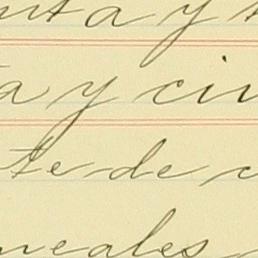 nta y t
a y cin
te de c
neales